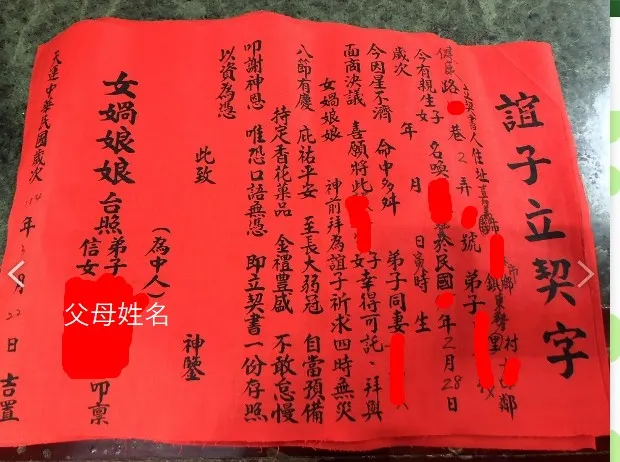 誼子立契字
立契書人住址 縣 鄉鎮 里村 鄰
路 巷2弄 號 弟子
今有親生女子 名喚 於民國 年2月28日
歲次 年 月 日寅時 生
今因星不濟 命中多舛 弟子同妻
面商決議 喜願將此 女子幸得可託、拜與
女媧娘娘 神前拜為誼子祈求四時無災
八節有慶 庇祐平安 至長大弱冠 自當預備
持定香花菓品 金禮豊盛 不敢怠慢
叩謝神恩 唯恐口語無憑 即立契書一份存照
以資為憑
此致
神鑒
女媧娘娘 台照
(為中人)
弟子
信女
父母姓名
叩稟
天運中華民國歲次 年 月22日 吉置